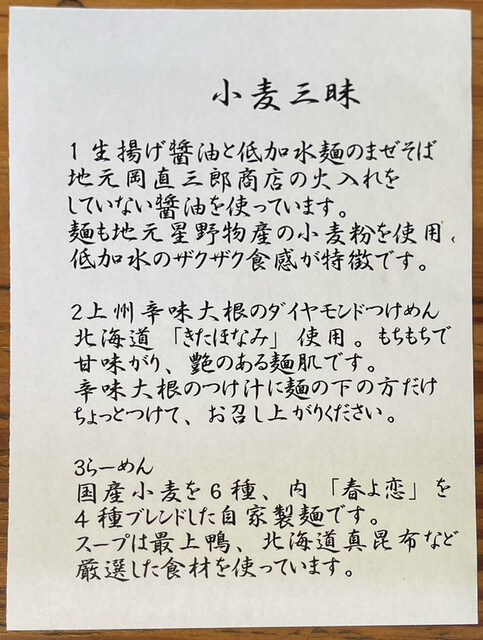 小麦三昧
1生揚げ醬油と低加水麺のまぜそば
地元岡直三郎商店の火入れを
していない醬油を使っています。
麺も地元星野物産の小麦粉を使用、
低加水のザクザク食感が特徴です。
2上州辛味大根のダイヤモンドつけめん
北海道「きたほなみ」使用。もちもちで
甘味がり、艶のある麺肌です。
辛味大根のつけ汁に麺の下の方だけ
ちょっとつけて、お召し上がりください。
3らーめん
国産小麦を6種、内「春よ恋」を
4種ブレンドした自家製麺です。
スープは最上鴨、北海道真昆布など
厳選した食材を使っています。